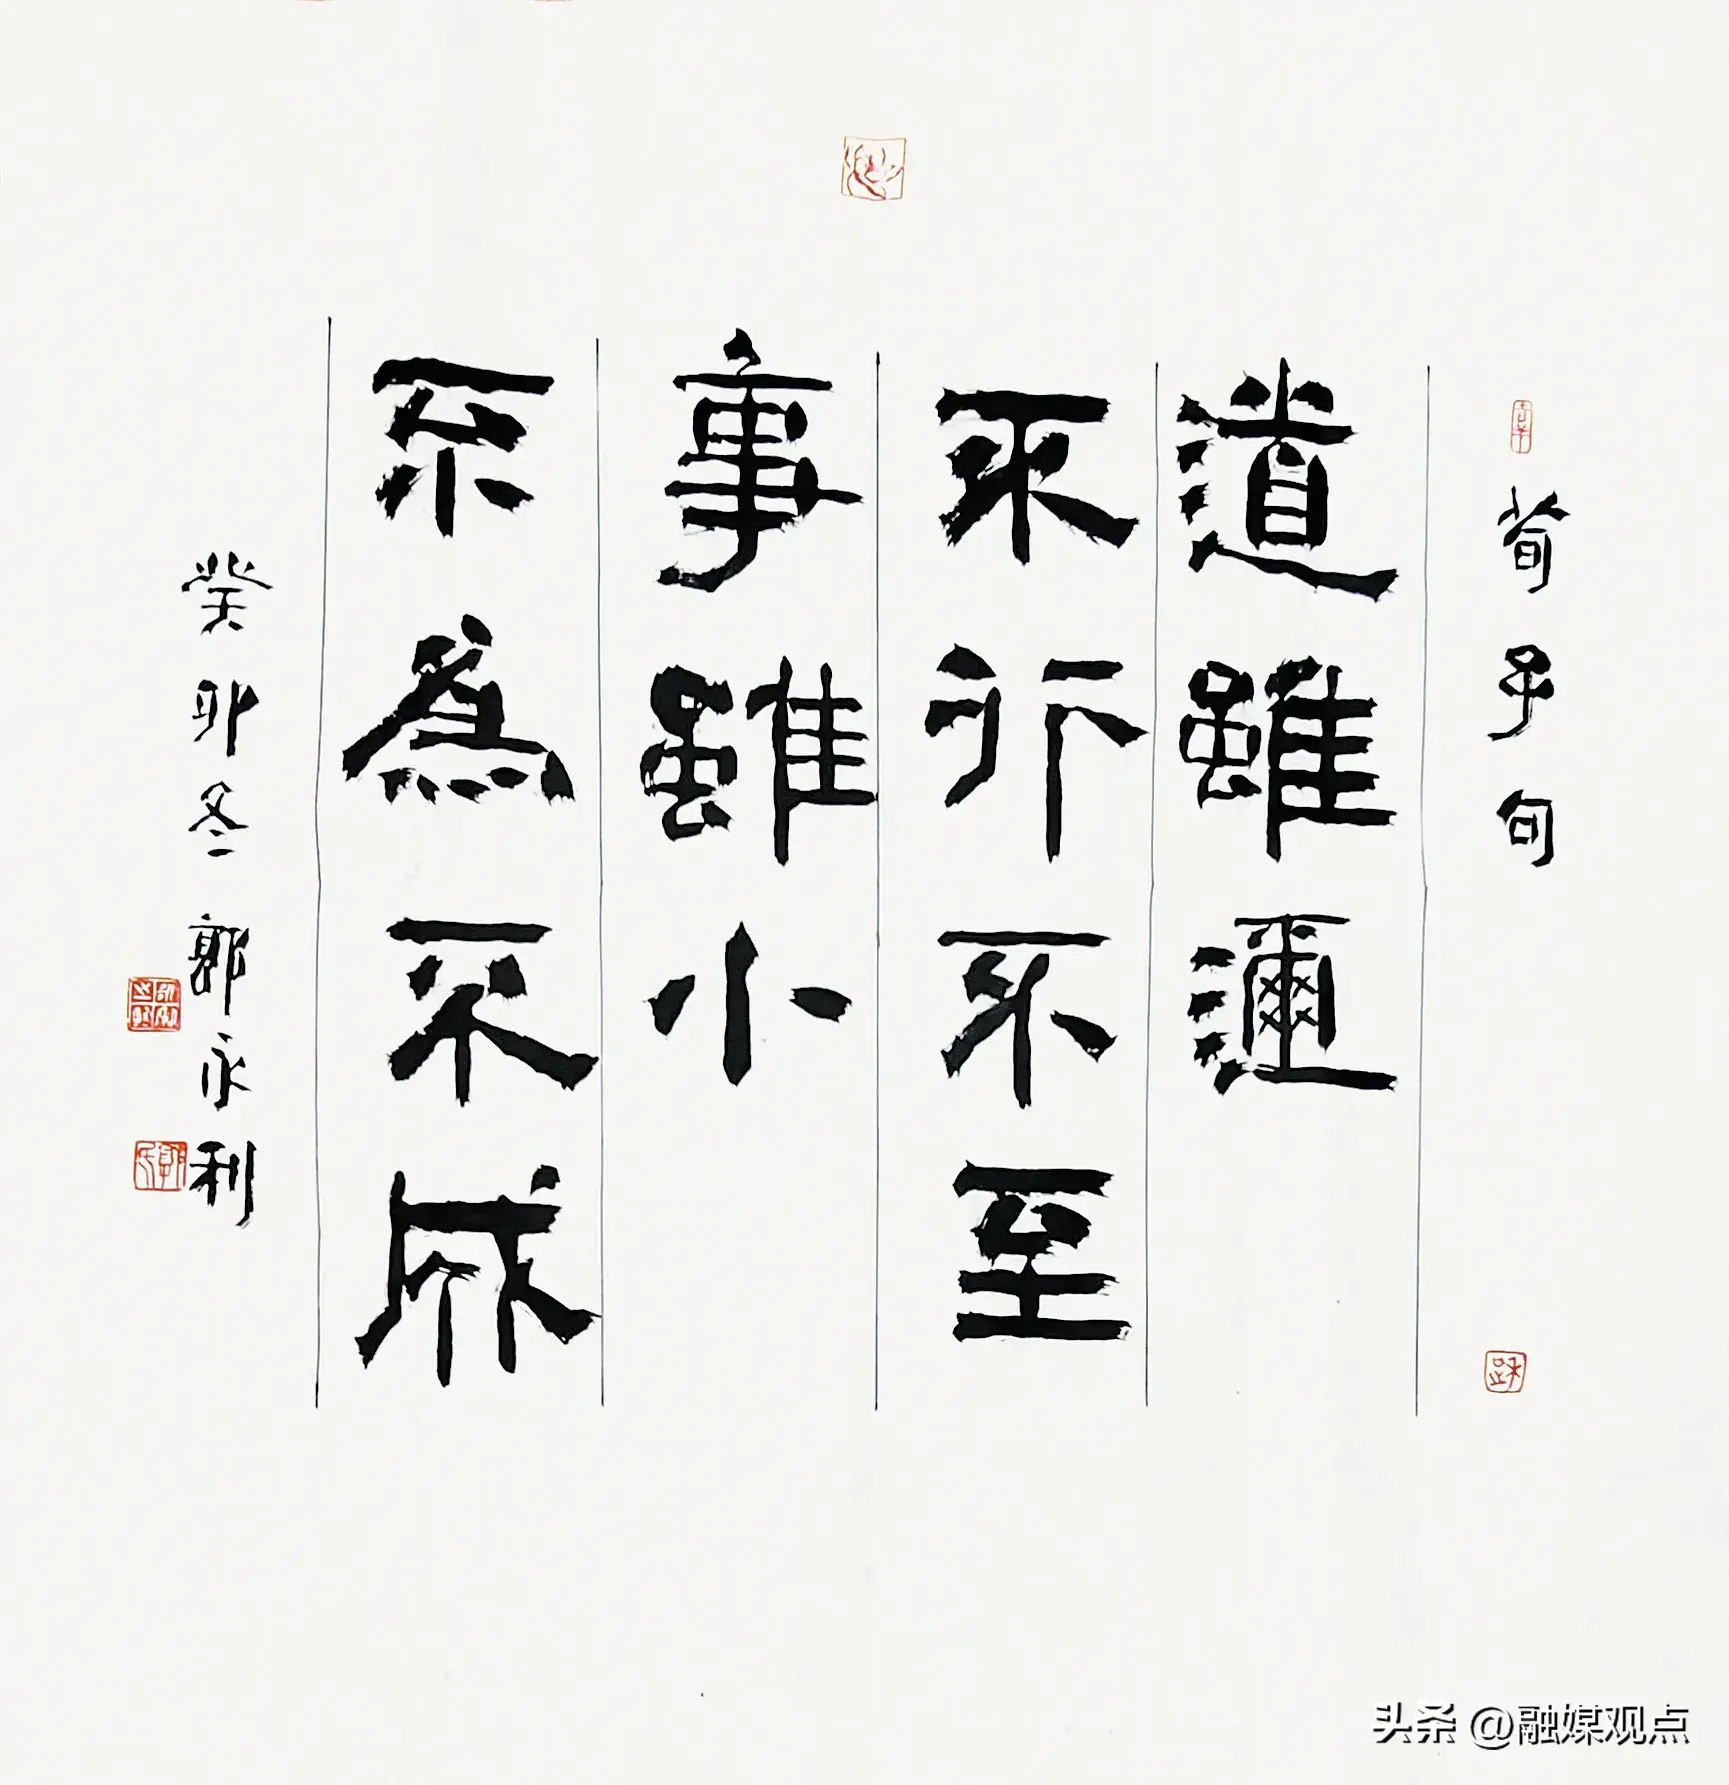 荀子句
道雖邇
不行不至
事雖小
不為不成
癸卯冬郭永利
头条 @融媒观点